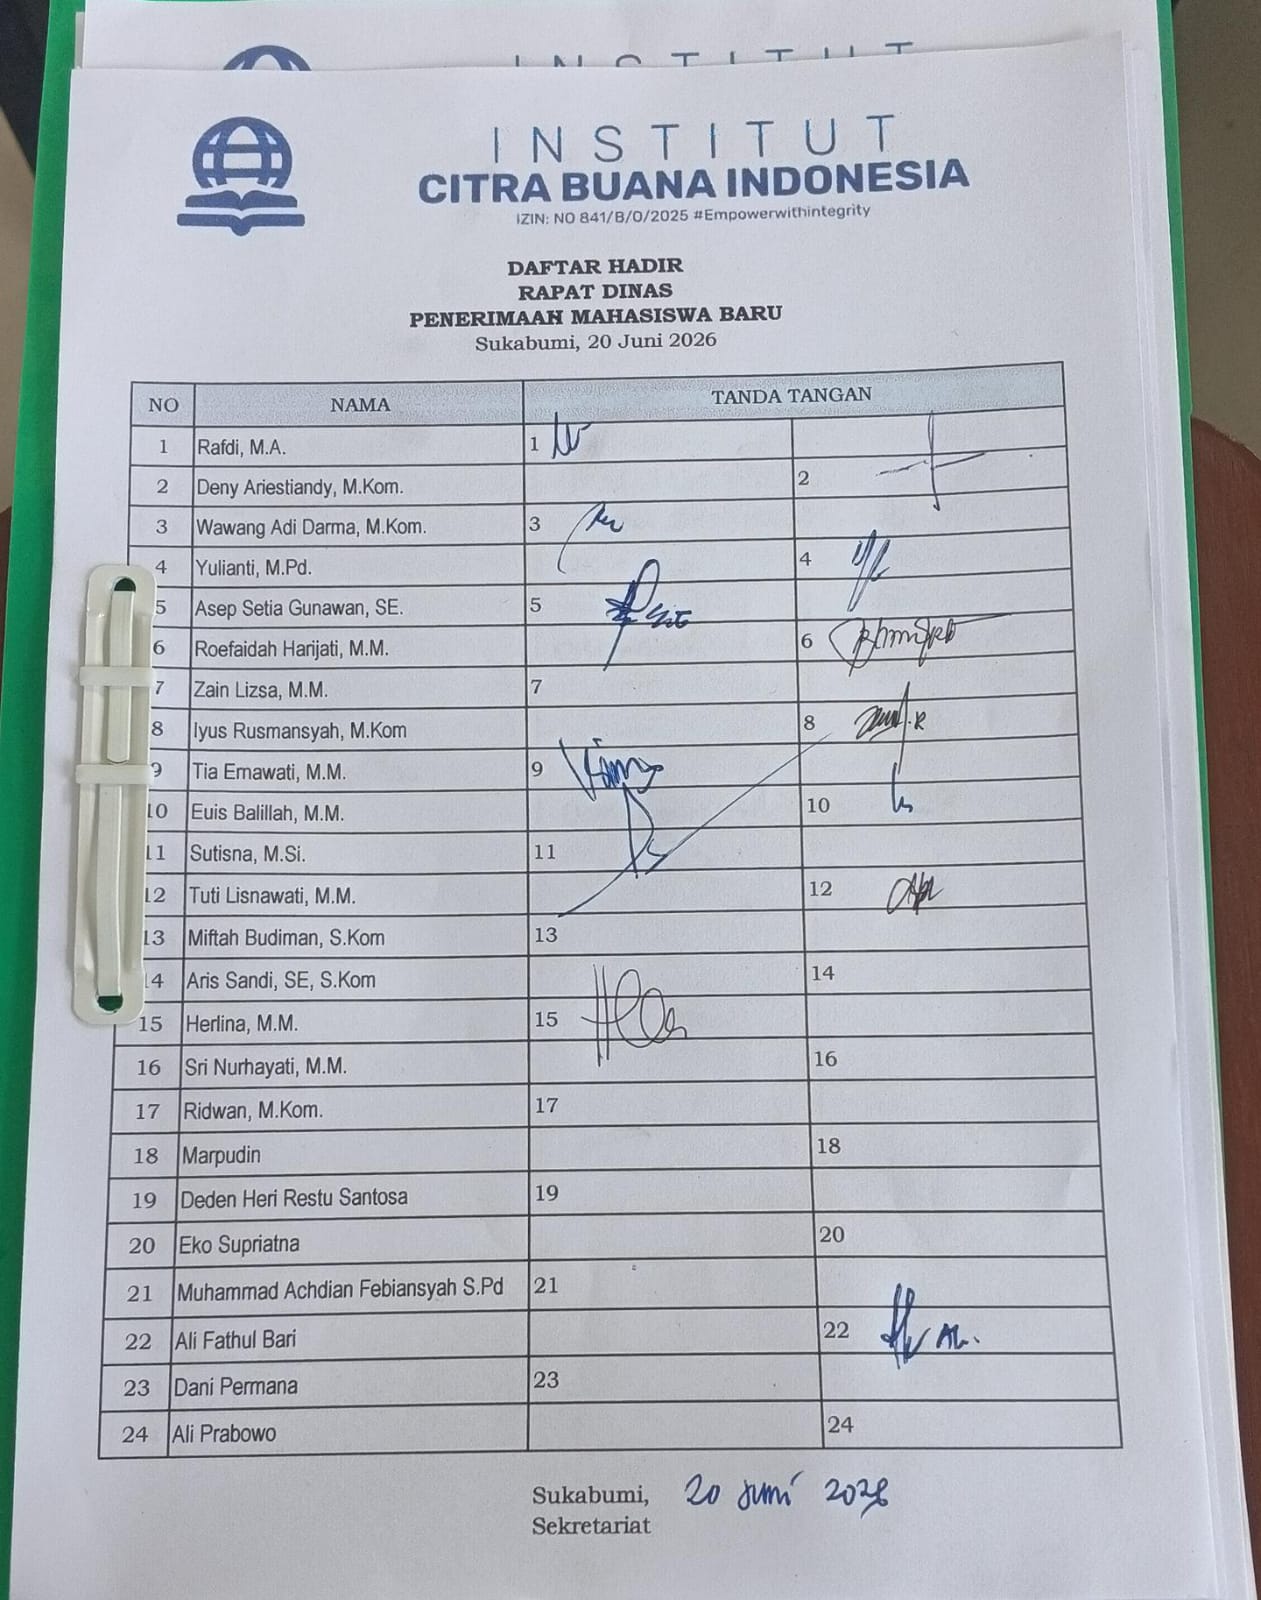 INSTITUT
CITRA BUANA INDONESIA
IZIN: NO 841/B/O/2025 #Empowerwithintegrity
DAFTAR HADIR
RAPAT DINAS
PENERIMAAN MAHASISWA BARU
Sukabumi, 20 Juni 2026
NO NAMA TANDA TANGAN
1 Rafdi, M.A. 1
2 Deny Ariestiandy, M.Kom. 2
3 Wawang Adi Darma, M.Kom. 3
4 Yulianti, M.Pd. 4
5 Asep Setia Gunawan, SE. 5
6 Roefaidah Harijati, M.M. 6
7 Zain Lizsa, M.M. 7
8 Iyus Rusmansyah, M.Kom 8
9 Tia Ernawati, M.M. 9
10 Euis Balillah, M.M. 10
11 Sutisna, M.Si. 11
12 Tuti Lisnawati, M.M. 12
13 Miftah Budiman, S.Kom 13
14 Aris Sandi, SE, S.Kom 14
15 Herlina, M.M. 15
16 Sri Nurhayati, M.M. 16
17 Ridwan, M.Kom. 17
18 Marpudin 18
19 Deden Heri Restu Santosa 19
20 Eko Supriatna 20
21 Muhammad Achdian Febiansyah S.Pd 21
22 Ali Fathul Bari 22
23 Dani Permana 23
24 Ali Prabowo 24
Sukabumi, 20 Juni
Sekretariat